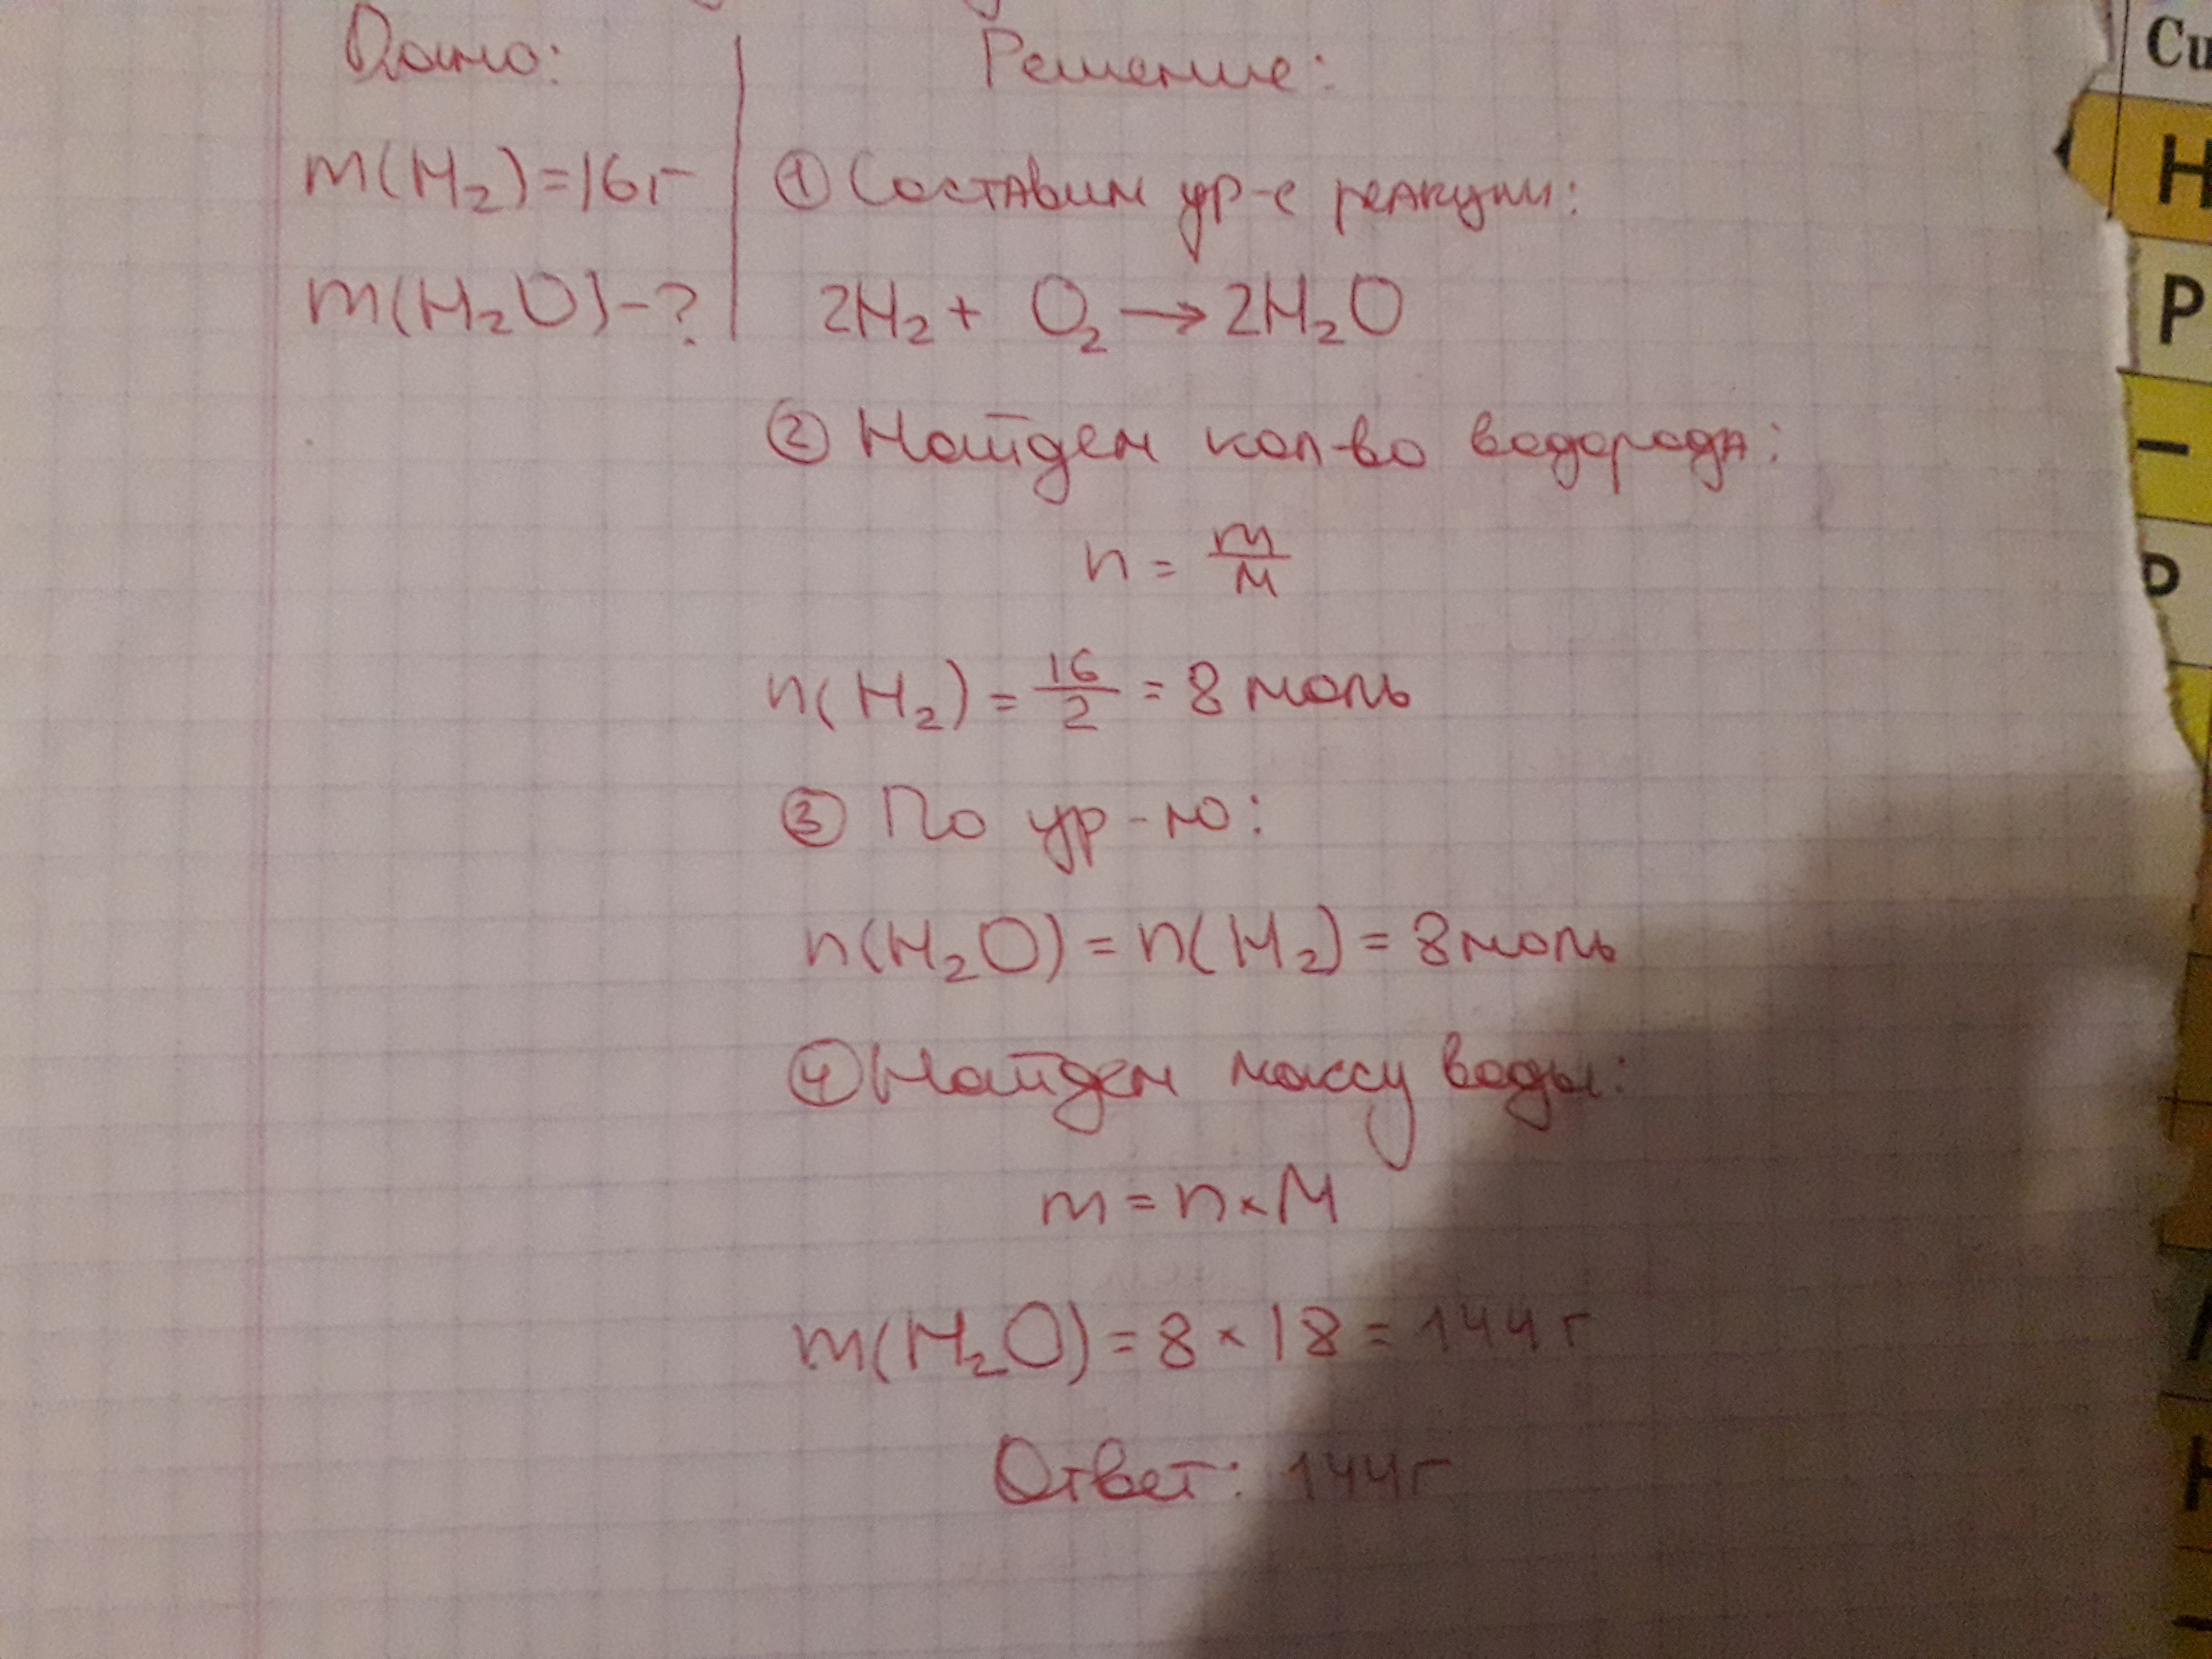 Дано:
Решение:
m(H₂)=16г
① Составим ур-е реакции:
m(H₂O)-?
2H₂ + O₂ → 2H₂O
② Найдем кол-во водорода:
n = m/M
n(H₂) = 16/2 = 8 моль
③ По ур-ю:
n(H₂O) = n(H₂) = 8 моль
④ Найдем массу воды:
m = n × M
m(H₂O) = 8 × 18 = 144 г
Ответ: 144г
Си
Н
Р
–
Р